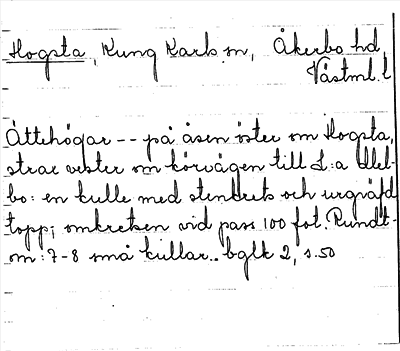 Hogsta, Kung Karls sn, Åkerbo hd,
Västml. l
Ättehögar -- på åsen öster om Hogsta,
strax vester om körvägen till L:a Ulle-
bo: en kulle med stenkrets och urgräfd
topp; omkretsen vid pass 100 fot. Rundt-
om: 7-8 små kullar.. bglk 2, s. 50